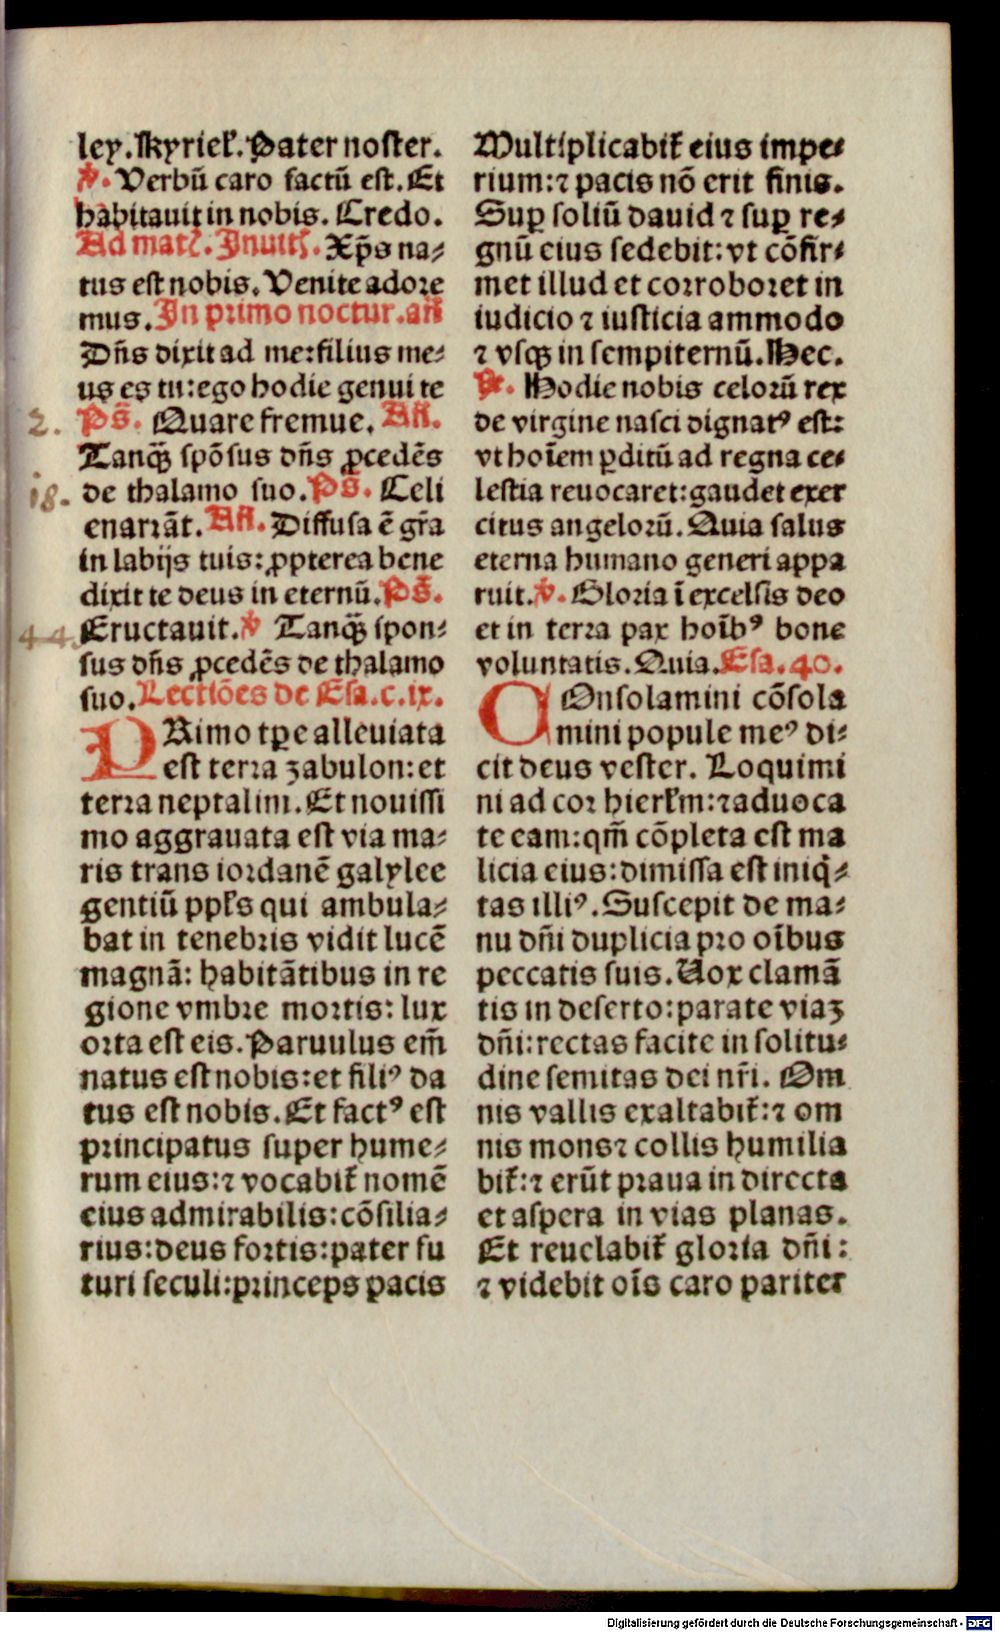 leẏ. Kyrieł. Pater noster.
℣. Verbū caro factū est. Et
habitauit in nobis. Credo.
Ad matꝭ. Inuitꝭ. Xp̄s na⸗
tus est nobis. Venite adore
mus. In primo noctur. añ
Dn̄s dixit ad me: filius me⸗
us es tu: ego hodie genui te
2. Ps̄. Quare fremue. Añ.
Tanqꝫ spōsus dn̄s ꝓcedēs
18. de thalamo suo. Ps̄. Celi
enarrāt. Añ. Diffusa ē gr̄a
in labijs tuis: ꝓpterea bene
dixit te deus in eternū. Ps̄.
44. Eructauit. ℣ Tanqꝫ spon⸗
sus dn̄s ꝓcedēs de thalamo
suo. Lectiōes de Esa. c. ix.
PRimo tꝑe alleuiata
est terra zabulon: et
terra neptalim. Et nouissi
mo aggrauata est via ma⸗
ris trans iordanē galylee
gentiū ppłs qui ambula⸗
bat in tenebris vidit lucē
magnā: habitātibus in re
gione vmbre mortis: lux
orta est eis. Paruulus em̄
natus est nobis: et filiꝰ da
tus est nobis. Et factꝰ est
principatus super hume⸗
rum eius: ⁊ vocabiť nomē
eius admirabilis: cōsilia⸗
rius: deus fortis: pater fu
turi seculi: princeps pacis
Multiplicabiť eius impe⸗
rium: ⁊ pacis nō erit finis.
Suꝑ soliū dauid ⁊ suꝑ re⸗
gnū eius sedebit: vt cōfir⸗
met illud et corroboret in
iudicio ⁊ iusticia ammodo
⁊ vsqꝫ in sempiternū. Hec.
℟. Hodie nobis celorū rex
de virgine nasci dignatꝰ est:
vt hoīem ꝑditū ad regna ce⸗
lestia reuocaret: gaudet exer
citus angelorū. Quia salus
eterna humano generi appa
ruit. ℣. Gloria ī excelsis deo
et in terra pax hoībꝰ bone
voluntatis. Quia. Esa. 40.
COnsolamini cōsola
mini popule meꝰ di⸗
cit deus vester. Loquimi
ni ad cor hierłm: ⁊ aduoca
te eam: qm̄ cōpleta est ma
licia eius: dimissa est iniq̄⸗
tas illiꝰ. Suscepit de ma⸗
nu dn̄i duplicia pro oībus
peccatis suis. Vox clamā
tis in deserto: parate viaꝫ
dn̄i: rectas facite in solitu⸗
dine semitas dei nr̄i. Om
nis vallis exaltabiť: ⁊ om
nis mons ⁊ collis humilia
biť: ⁊ erūt praua in directa
et aspera in vias planas.
Et reuelabiť gloria dn̄i:
⁊ videbit oīs caro pariter
Digitalisierung gefördert durch die Deutsche Forschungsgemeinschaft - DFG